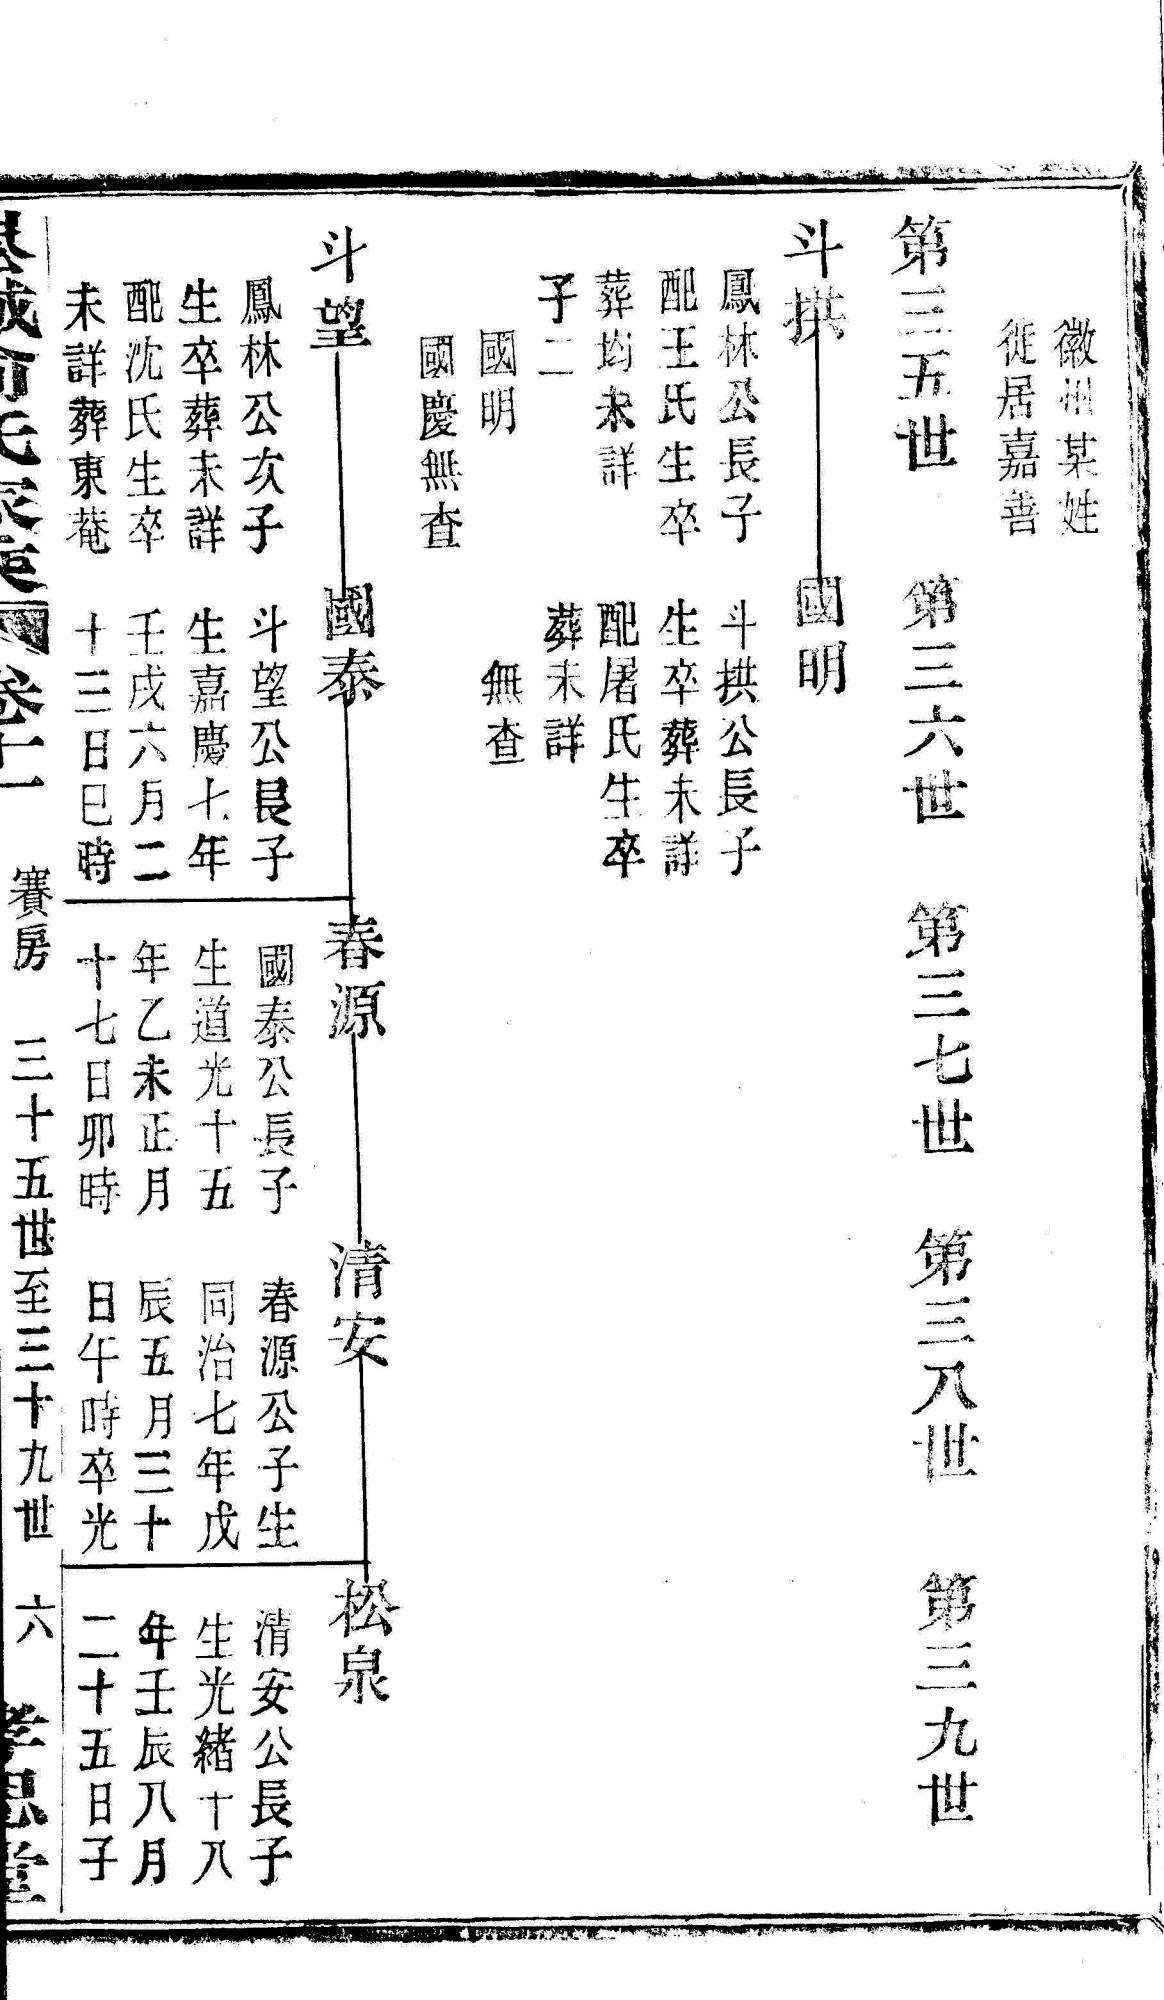 徽州某姓
徙居嘉善
第三五世 第三六世 第三七世 第三八世 第三九世
斗拱 國明
鳳林公長子 斗拱公長子
配王氏生卒 生卒葬未詳
葬均未詳 配屠氏生卒
子二 葬未詳
國明 無查
國慶無查
斗望 國泰 春源 清安 松泉
鳳林公次子 斗望公長子 國泰公長子 春源公子生 清安公長子
生卒葬未詳 生嘉慶七年 生道光十五 同治七年戊 生光緒十八
配沈氏生卒 壬戌六月二 年乙未正月 辰五月三十 年壬辰八月
未詳葬東菴 十三日巳時 十七日卯時 日午時卒光 二十五日子
俞氏家乘 卷十一 賽房 三十五世至三十九世 六 孝思堂